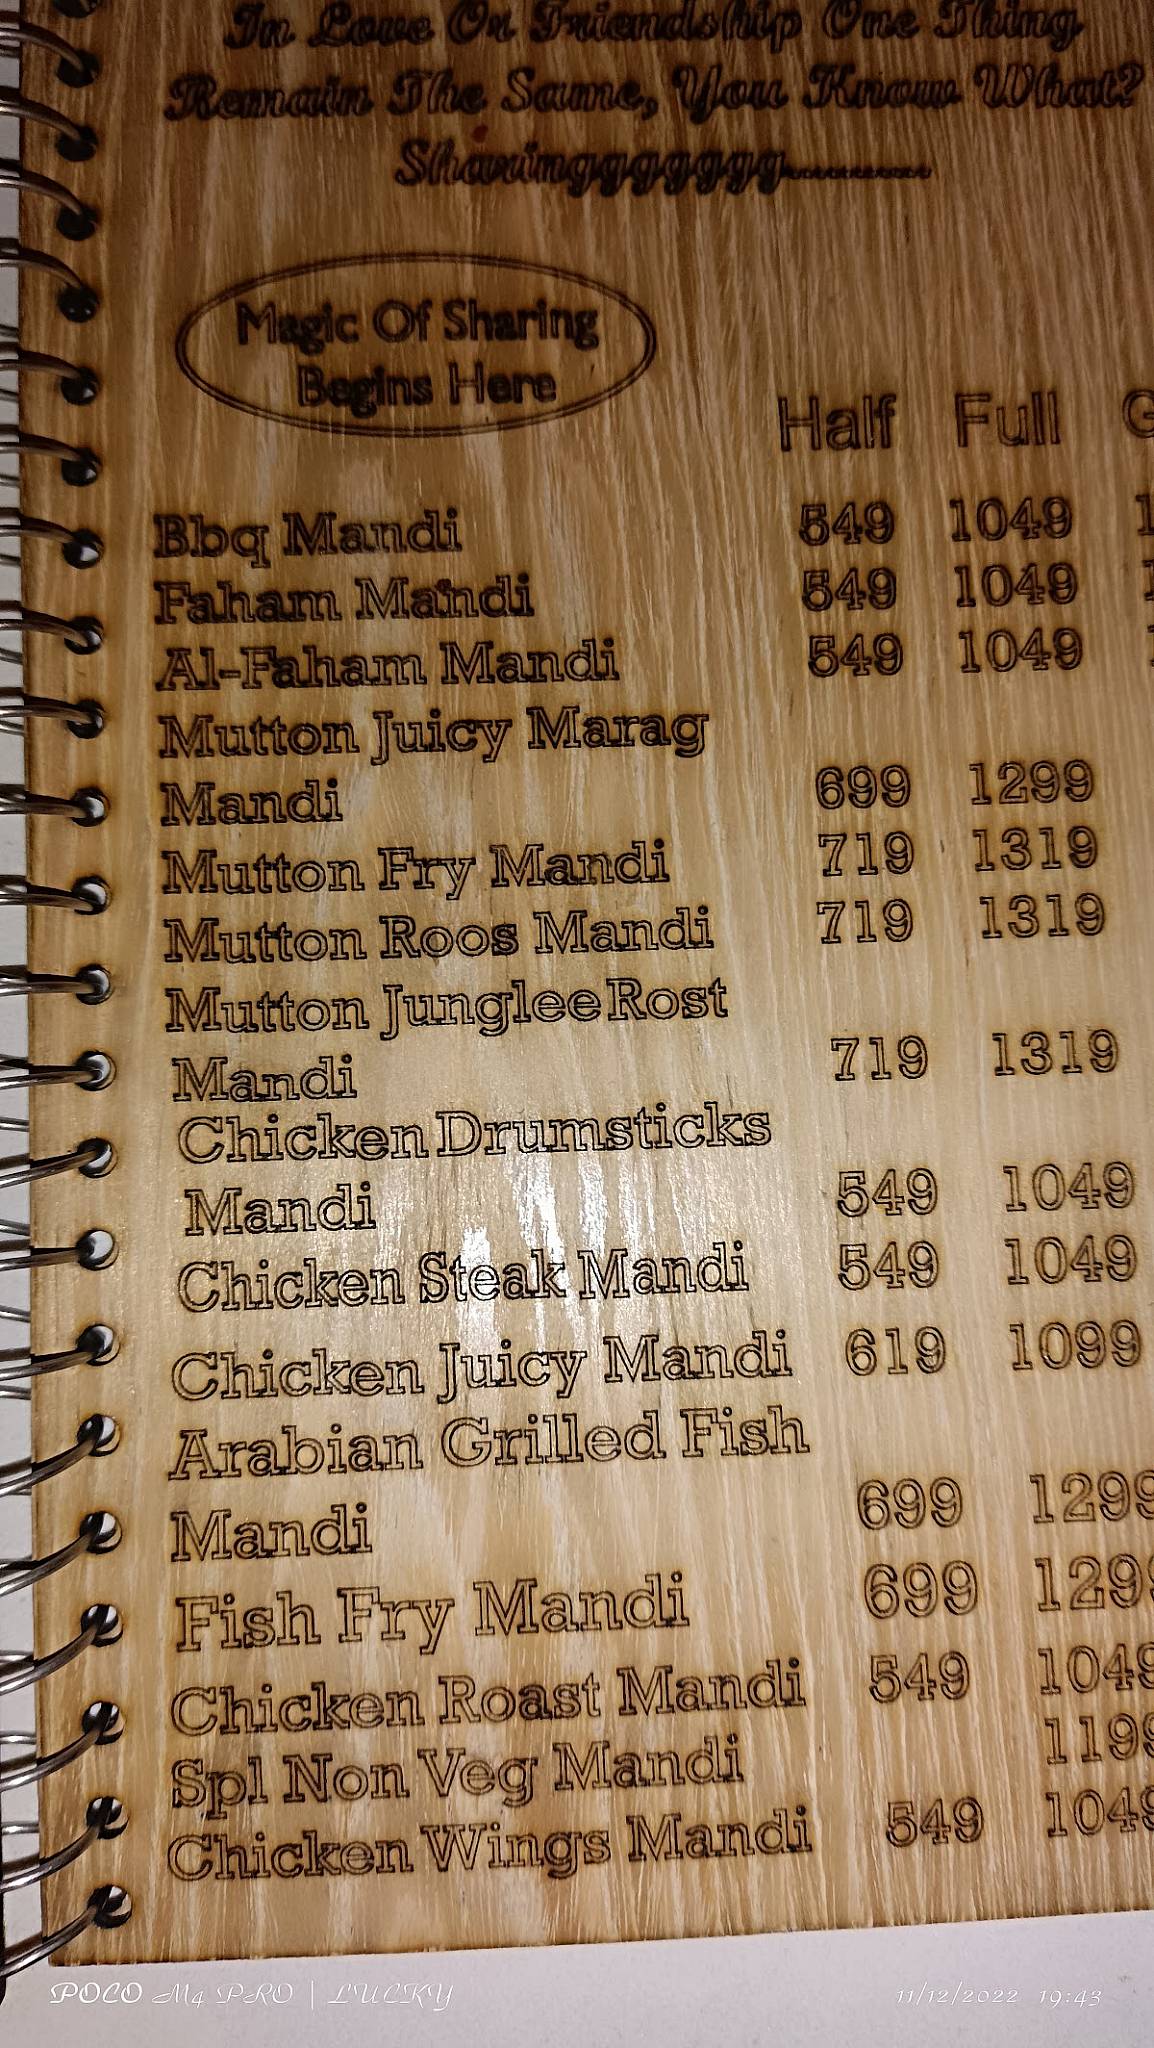 In Love Or Friendship One Thing
Remain The Same, You Know What?
Sharingggggggg...........
Magic Of Sharing
Begins Here
Half Full
Bbq Mandi 549 1049
Faham Mandi 549 1049
Al-Faham Mandi 549 1049
Mutton Juicy Marag
Mandi 699 1299
Mutton Fry Mandi 719 1319
Mutton Roos Mandi 719 1319
Mutton Junglee Rost
Mandi 719 1319
Chicken Drumsticks
Mandi 549 1049
Chicken Steak Mandi 549 1049
Chicken Juicy Mandi 619 1099
Arabian Grilled Fish
Mandi 699 1299
Fish Fry Mandi 699 1299
Chicken Roast Mandi 549 1049
Spl Non Veg Mandi 1199
Chicken Wings Mandi 549 1049
POCO M4 PRO | LUCKY 11/12/2022 19:43